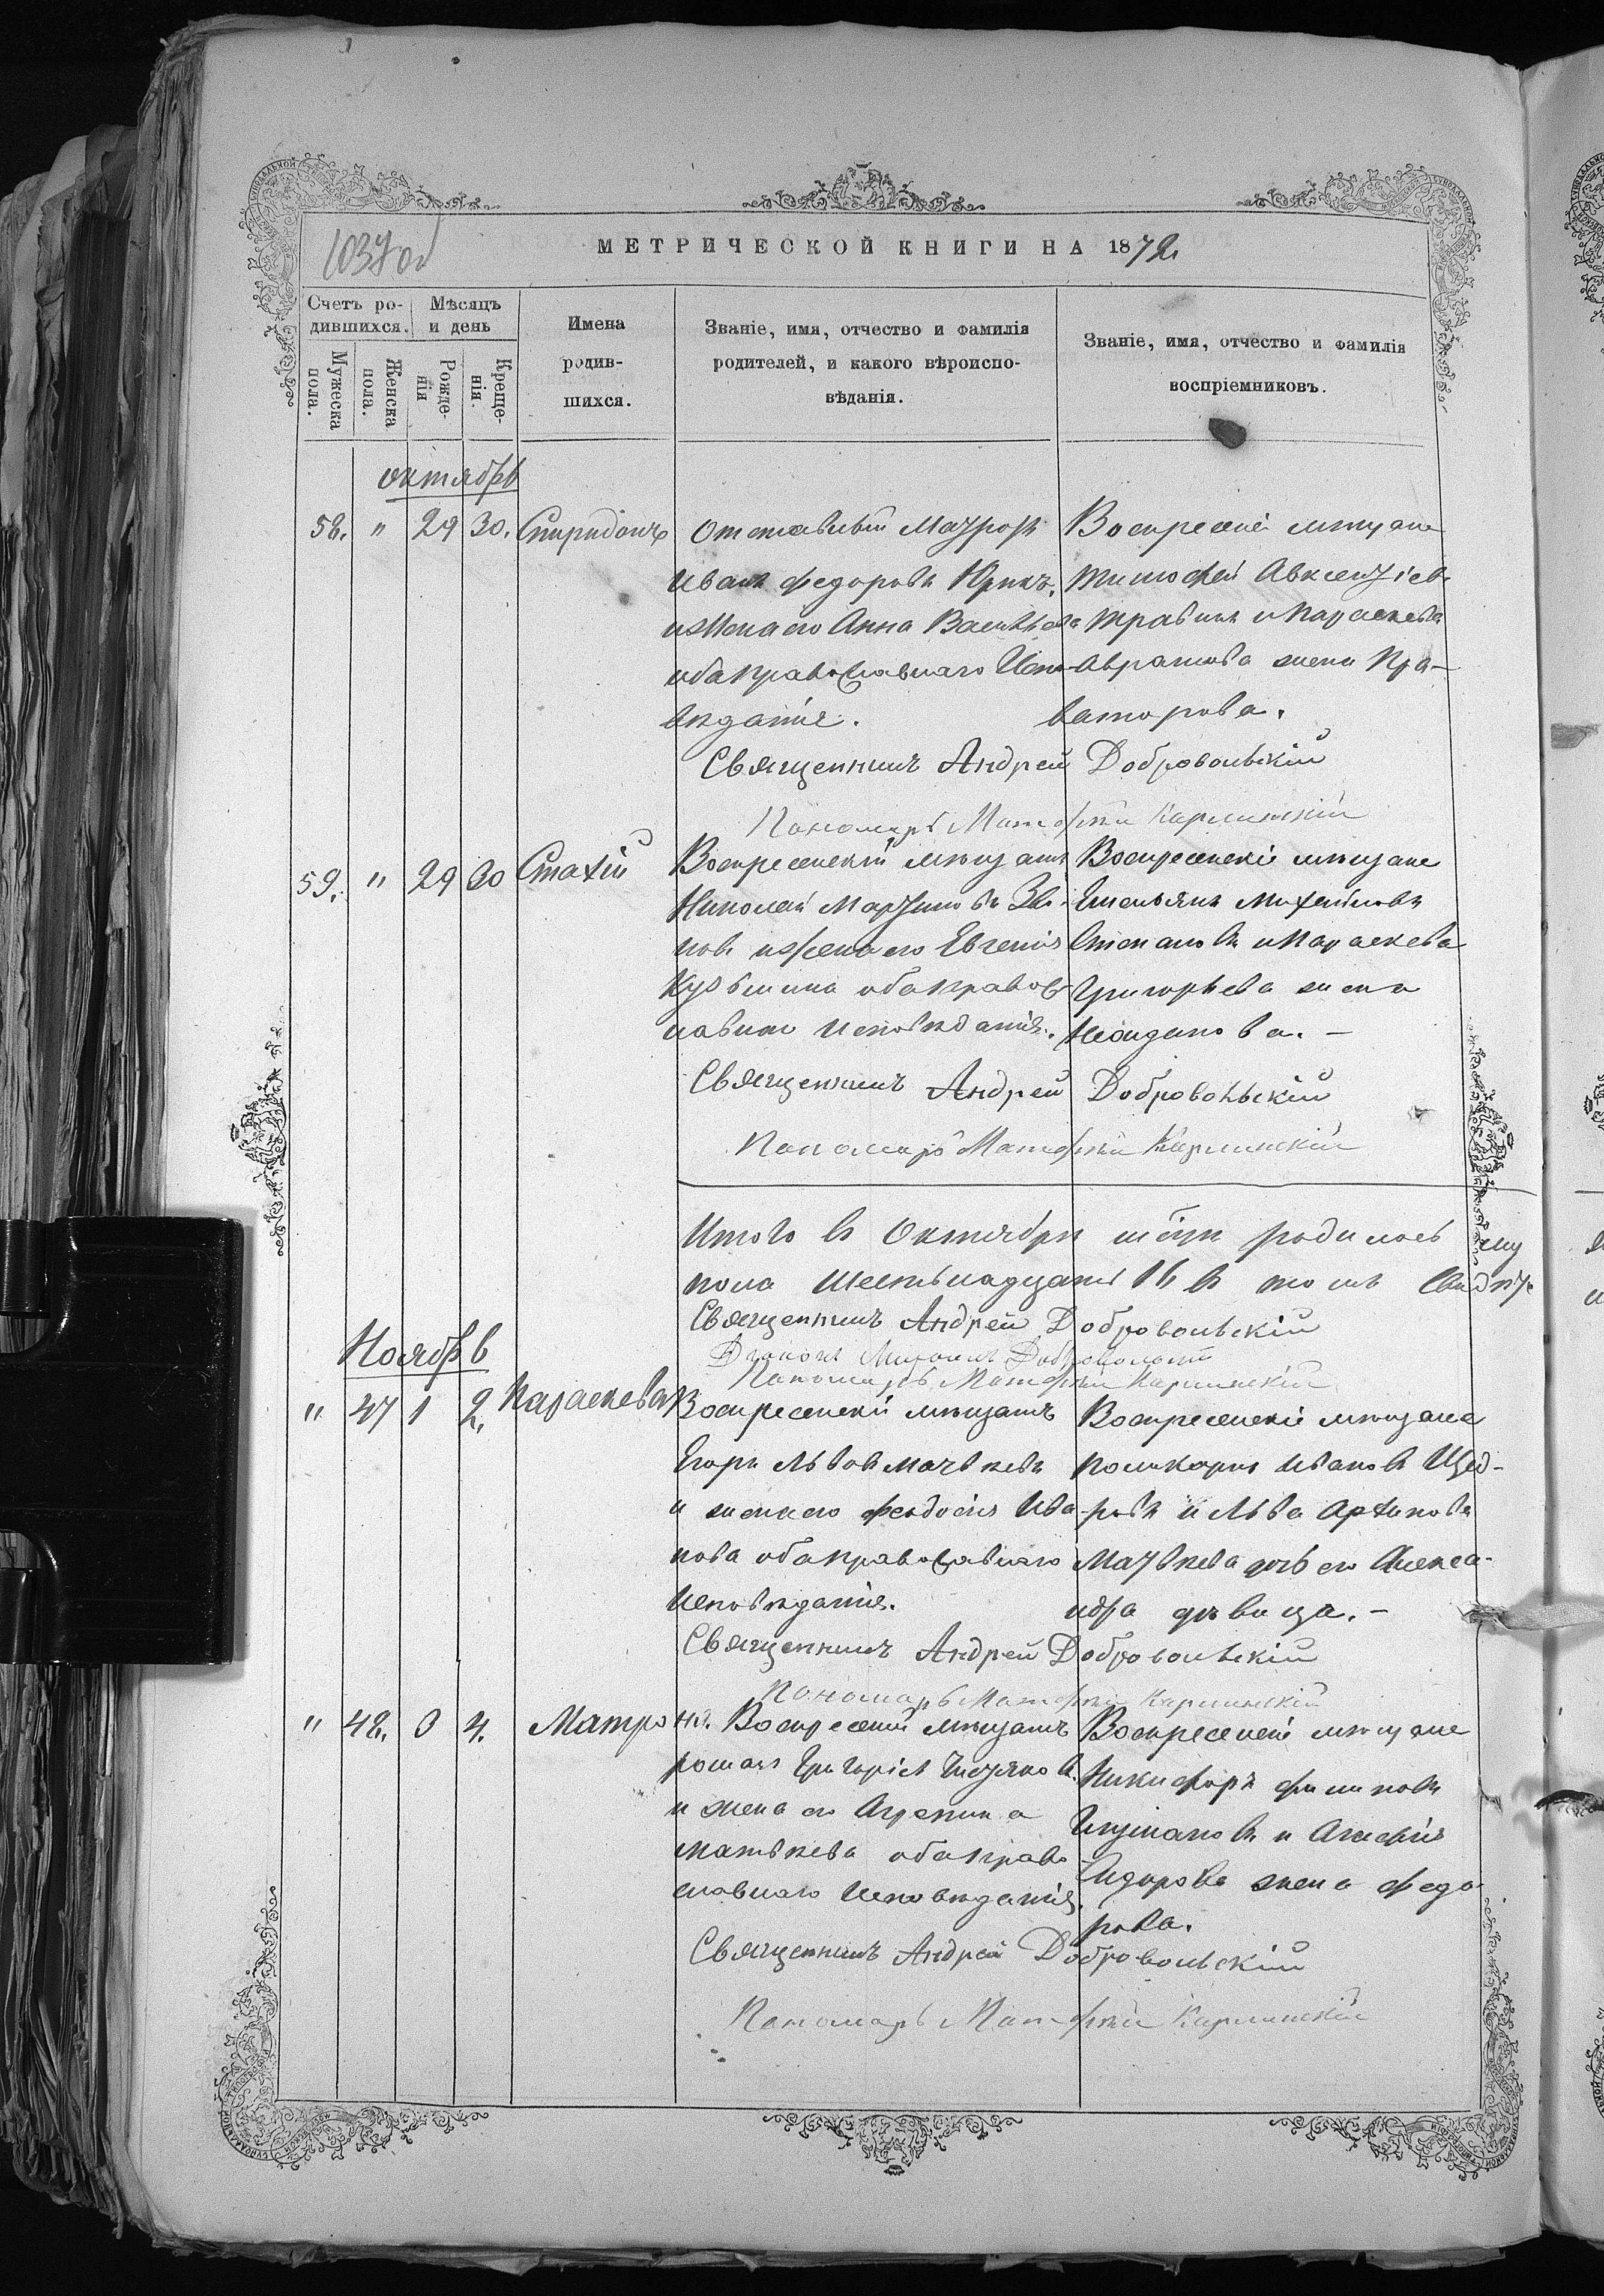 МЕТРИЧЕСКОЙ КНИГИ НА 1872
1037 об
Счетъ ро-
дившихся.
Мѣсяцъ
и день
Мужеска
пола.
Женска
пола.
Рожде-
нія
Креще-
нія.
Имена
родив-
шихся.
Званіе, имя, отчество и фамилія
родителей, и какого вѣроиспо-
вѣданія.
Званіе, имя, отчество и фамилія
воспріемниковъ.
октябрь
58. " 29 30. Спиридонъ
Отставный Матросъ
Иванъ Федоровъ
и жена его Анна Васильева
оба православнаго Испо-
вѣданія.
мѣщане
Тимофей Авксентіев
и Параскева
Аврамова жена
ваторова.
Священникъ Андрей Добровольскій
Пономарь Матфей Карминскій
59. " 29 30 Стахій
Воскресенскій мѣщанин
Николай Мартиновъ
новъ и жена его Евгенія
Кузьмина оба правос
лавнаго Исповѣданія.
Воскресенскіе мѣщане
Емельянъ Михайловъ
Степановъ и Параскева
Григорьева жена
Священникъ Андрей Добровольскій
Пономарь Матфей Карминскій
Итого въ Октябрѣ родилось
пола Шестьнадцать 16 въ томъ
Священникъ Андрей Добровольскій
Пономарь Матфей Карминскій
Ноябрь
" 47 1 2. Параскева
Воскресенскій мѣщанинъ
Егоръ Львов
и жена его Феодосія Ива
нова оба православнаго
Исповѣданія.
Воскресенскіе мѣщане
Поликарпъ Ивановъ Щед-
ровъ и Льва Архипова
дочь его Алекса-
ндра дѣвица. -
Священникъ Андрей Добровольскій
Пономарь Матфей Карминскій
" 48. 4. Матрона.
Воскресенскій мѣщанинъ
Романъ
и жена его Агрепина
Матвѣева оба право
славнаго Исповѣданія.
Воскресенскіе мѣщане
Никифоръ
и Агафія
Сидорова жена Федо
рова.
Священникъ Андрей Добровольскій
Пономарь Матфей Карминскій